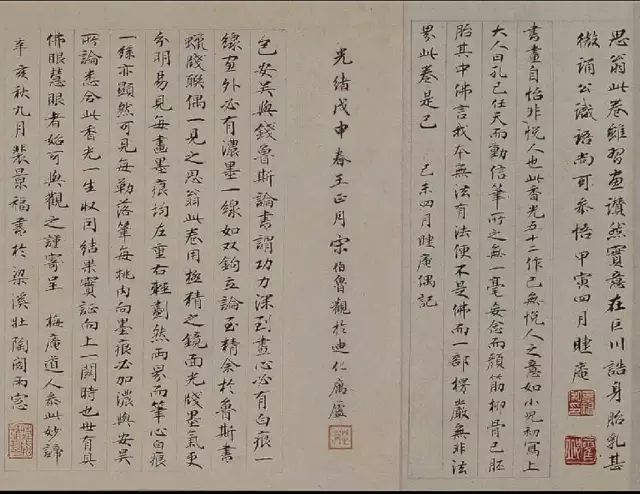 思翁此卷雖習畫讚然實意在巨川誥身胎乳甚
微誦公識語尚可參悟 甲寅四月睫庵
書畫自怡非悅人也此香光五十二作已無悅人之意如小兒初寫上
大人曰孔已任天而動信筆所之無一毫妄念而顏筋柳骨已胚
胎其中佛言我本無法有法便不是佛而一部楞嚴無非法
界此卷是已 己未四月睫庵偶記
光緒戊申春王正月宋伯魯觀於迪化寓廬
包安吳與錢魯斯論書謂功力深到畫心必有白痕一
線畫外必有濃墨一線如雙鉤立論至精余於魯斯書
蠟牋聯偶一見之思翁此卷用極精之鏡面光牋墨氣更
分明易見每畫墨痕均左重右輕劃然兩界而筆心白痕
一絲亦顯然可見每勒落筆每挑內向墨痕必加濃與安吳
所論悉合此香光一生收因結果實證向上一關時也世有具
佛眼慧眼者始可與觀之謹寄呈 梅庵道人參此妙諦
辛亥秋九月裴景福書於梁溪壯陶閣雨窓